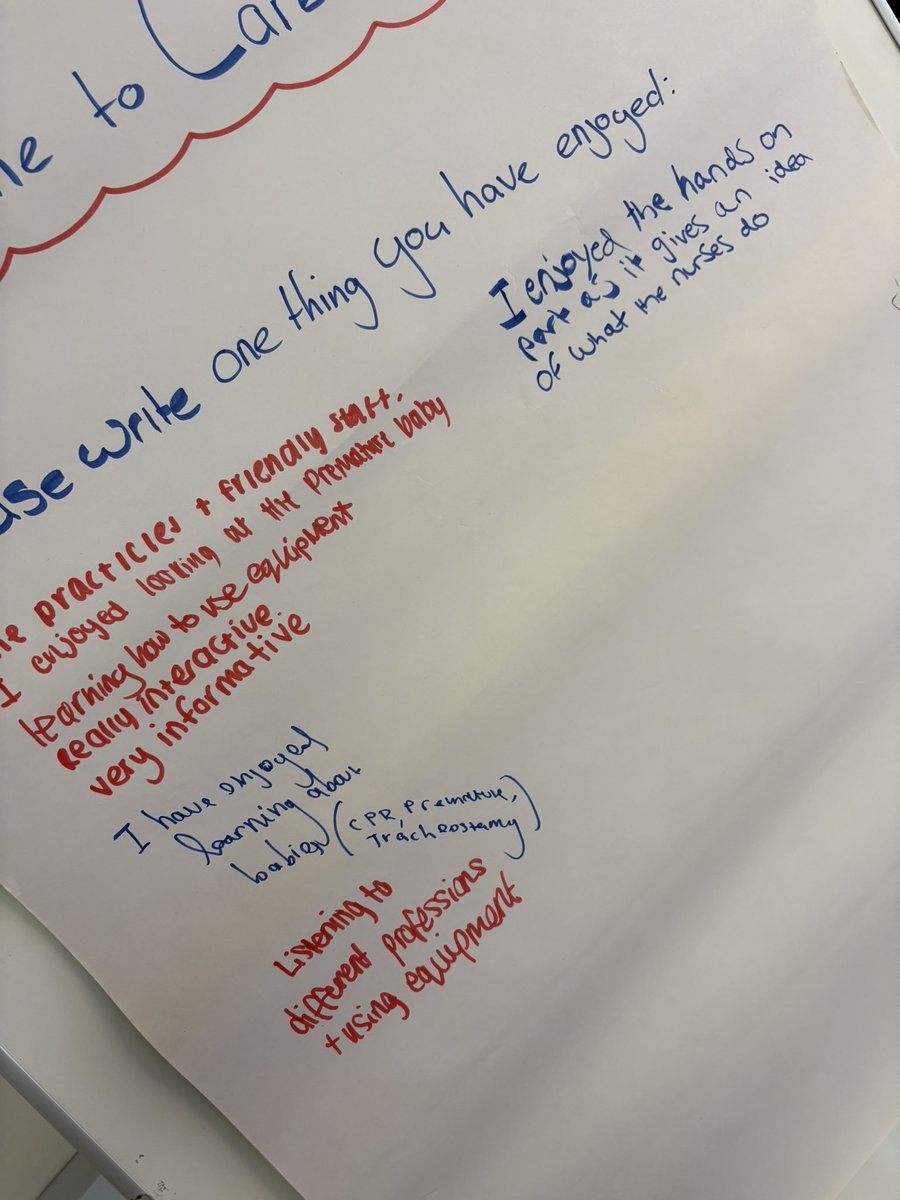 to
write one thing you have enjoyed:
I enjoyed the hands on
part as it gives an idea
of what the nurses do
practicies + friendly staff.
I enjoyed looking at the premature baby
learning how to use equipment
really interactive.
very informative
I have enjoyed
learning about
babies (CPR, Premature,
Tracheostamy)
Listening to
different professions
+ using equipment